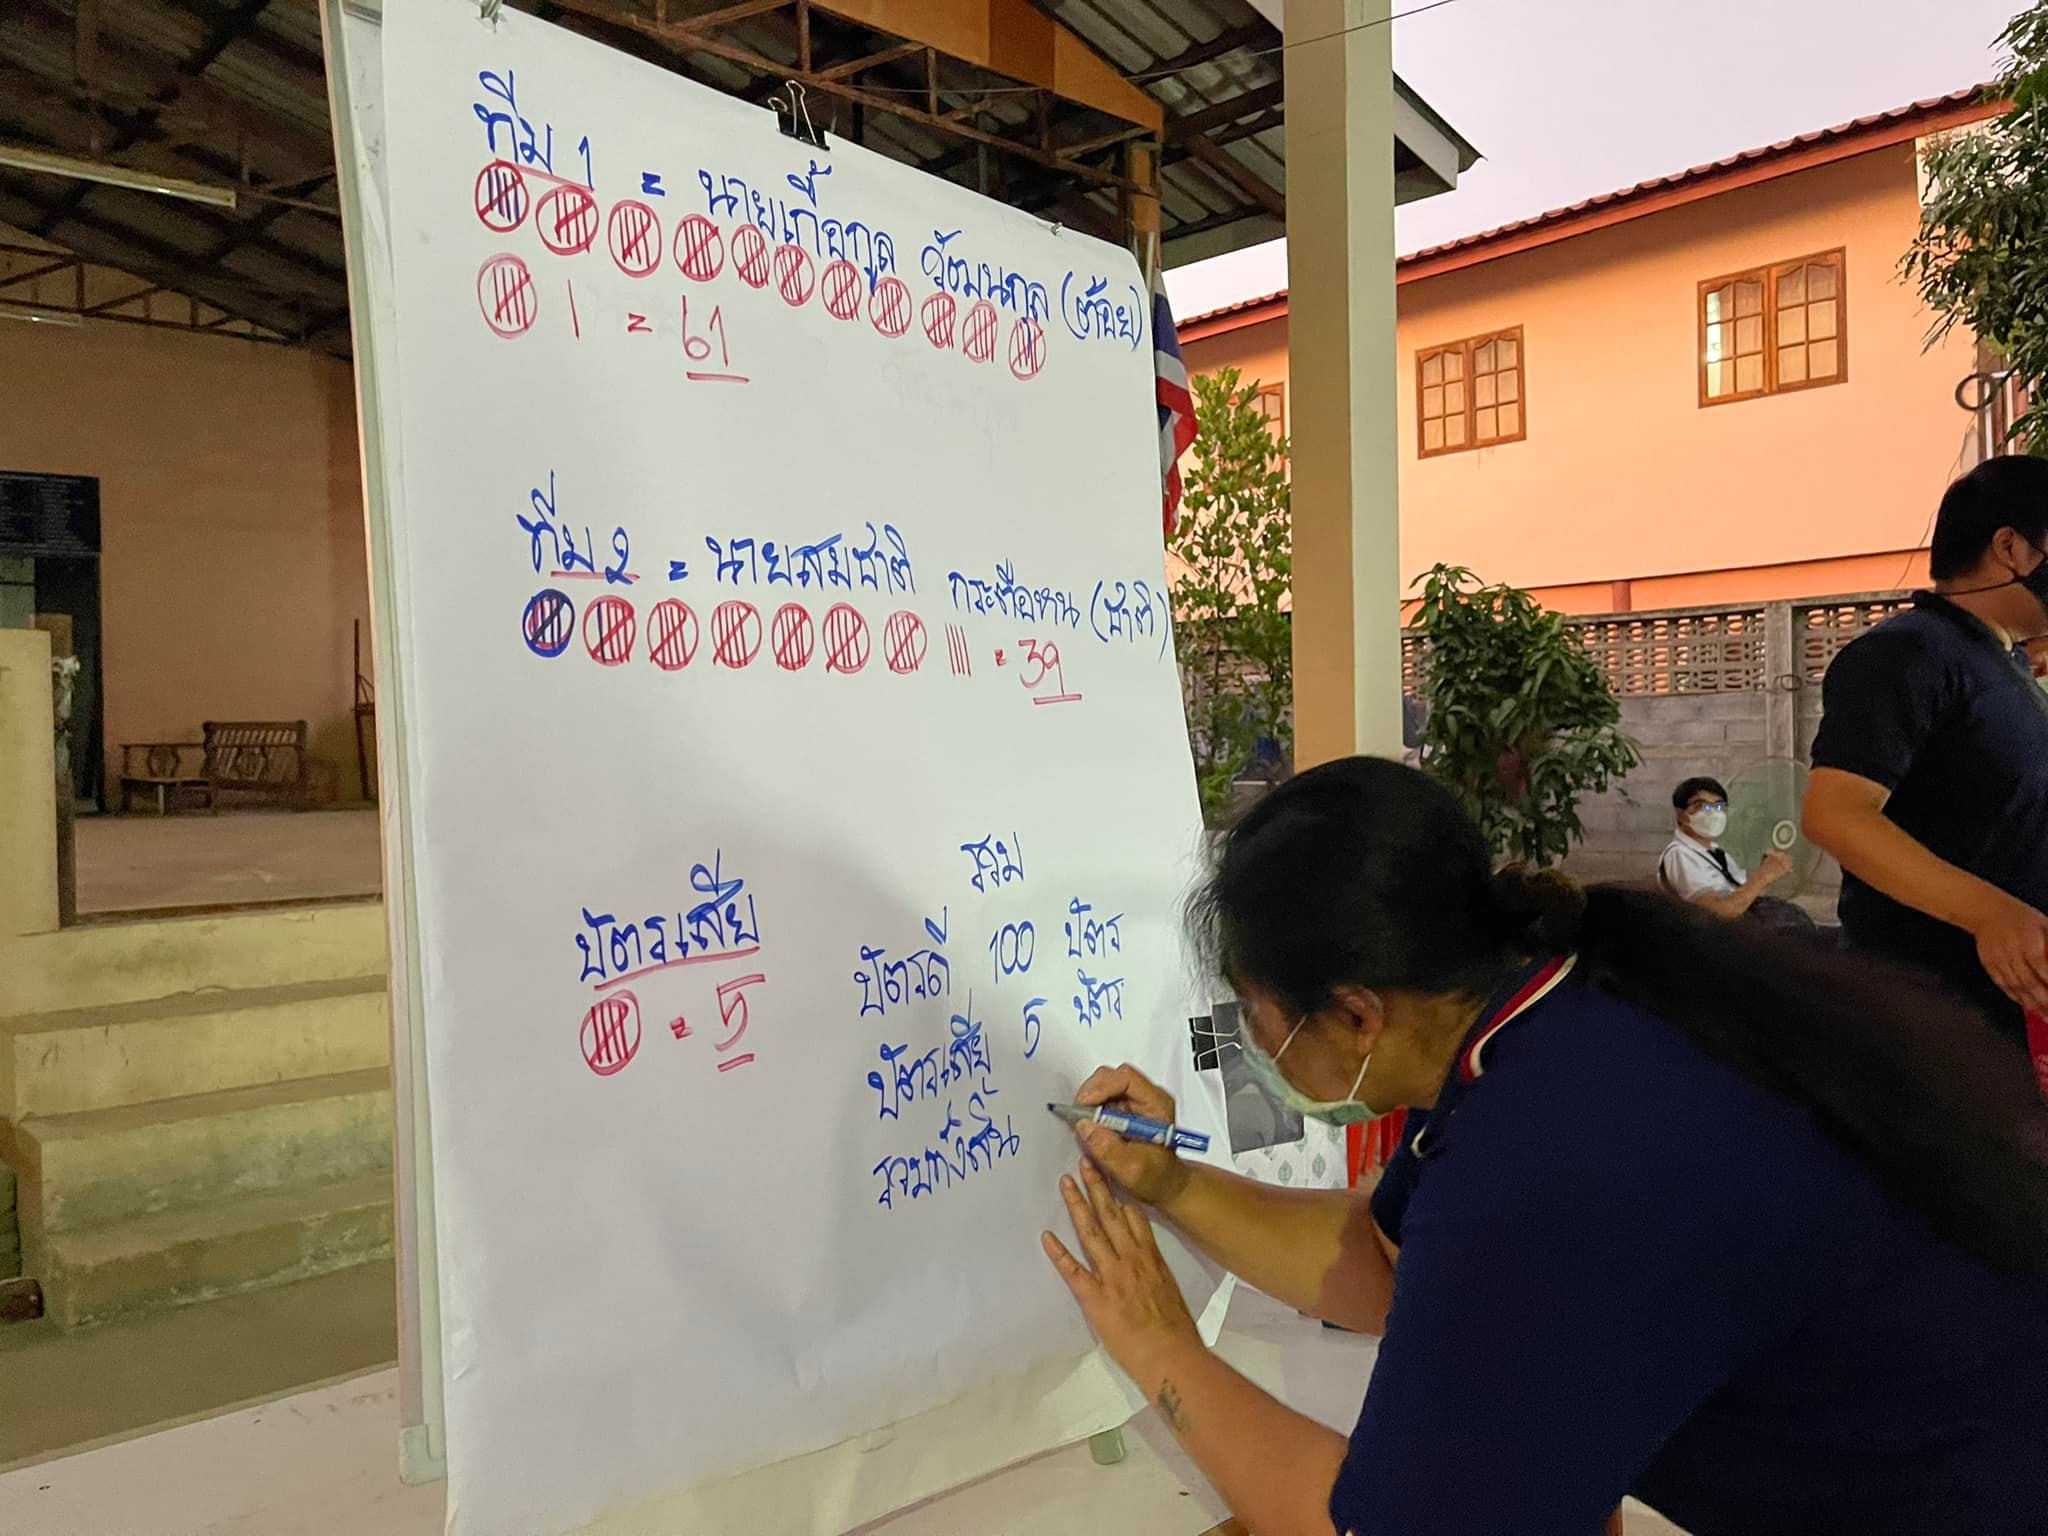 ทีม 1 = นายเกื้อกูล วัฒนกุล (ต้อย)
1 = 61
ทีม 2 = นายสมชาติ กระต่ายหน (ชาติ)
= 39
บัตรเสีย
= 5
รวม
บัตรดี 100 บัตร
บัตรเสีย 5 บัตร
รวมทั้งสิ้น